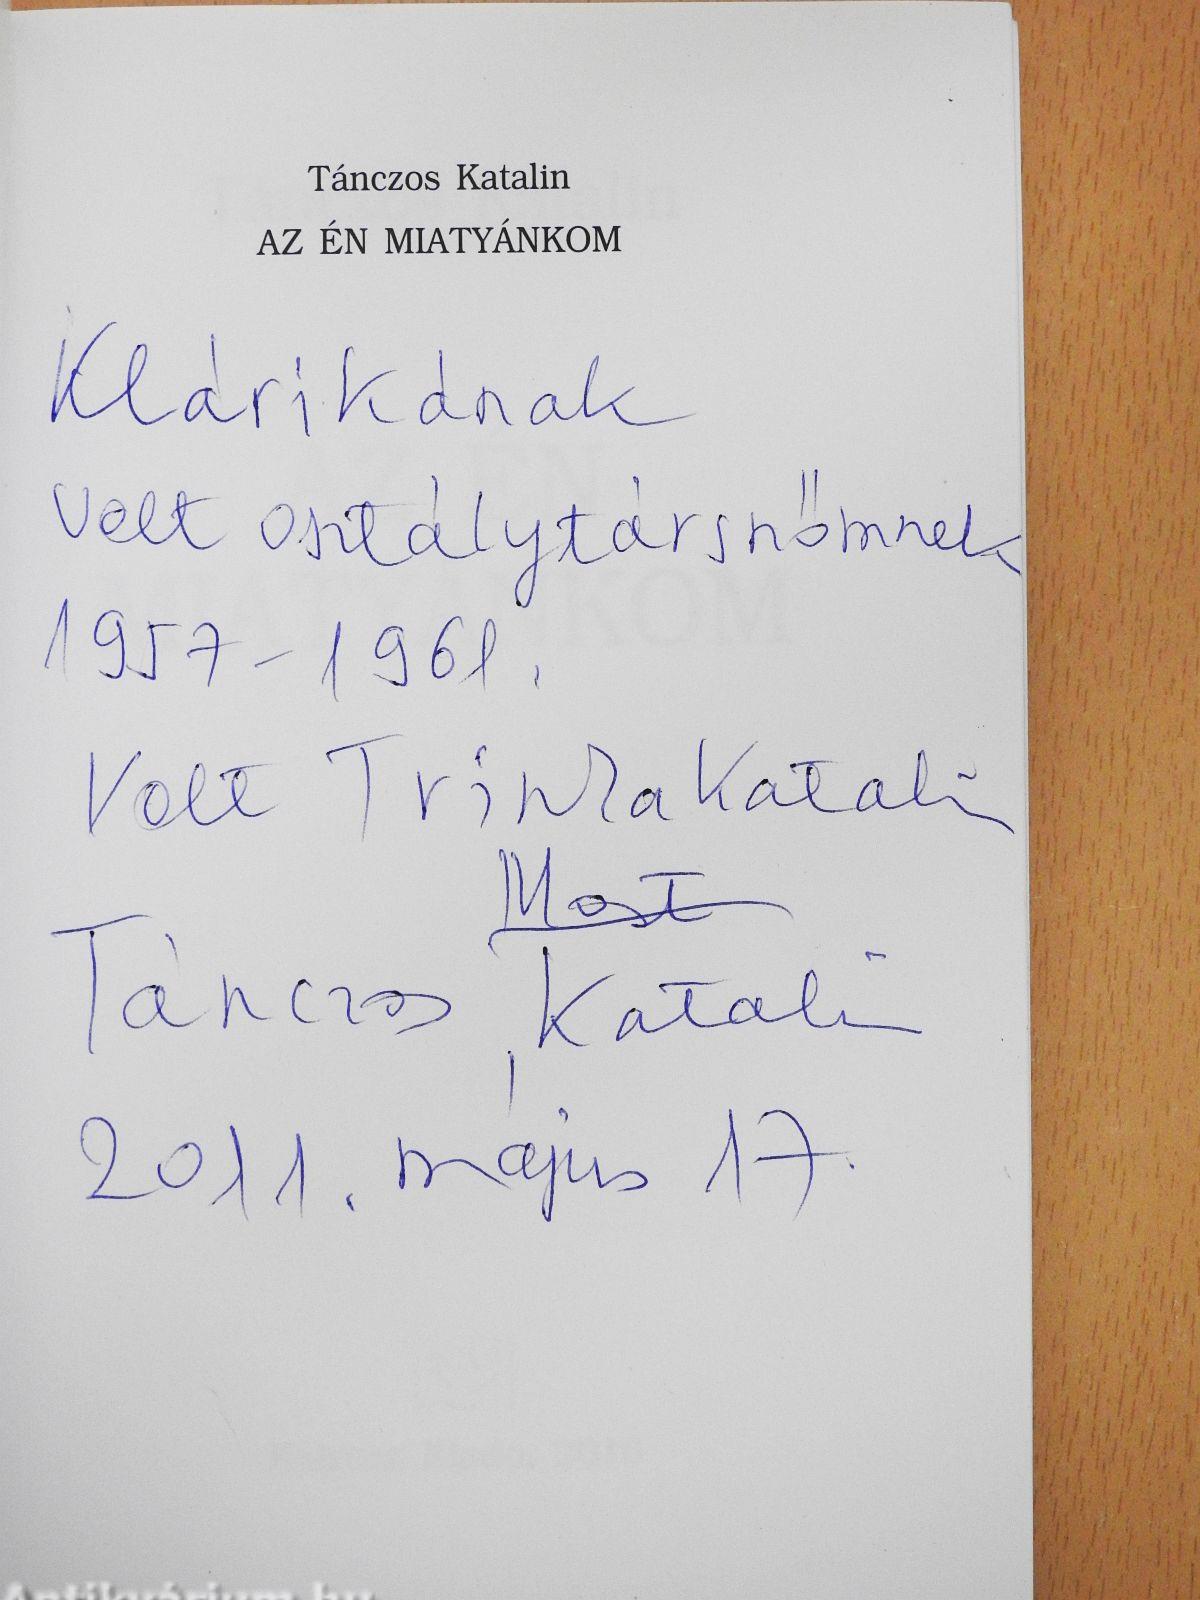 Tánczos Katalin
AZ ÉN MIATYÁNKOM
Klárikának
Volt osztálytársnőmnek
1957-1961.
Volt Katalin
Most
Tánczos Katalin
2011. május 17.
Antikvárium.hu